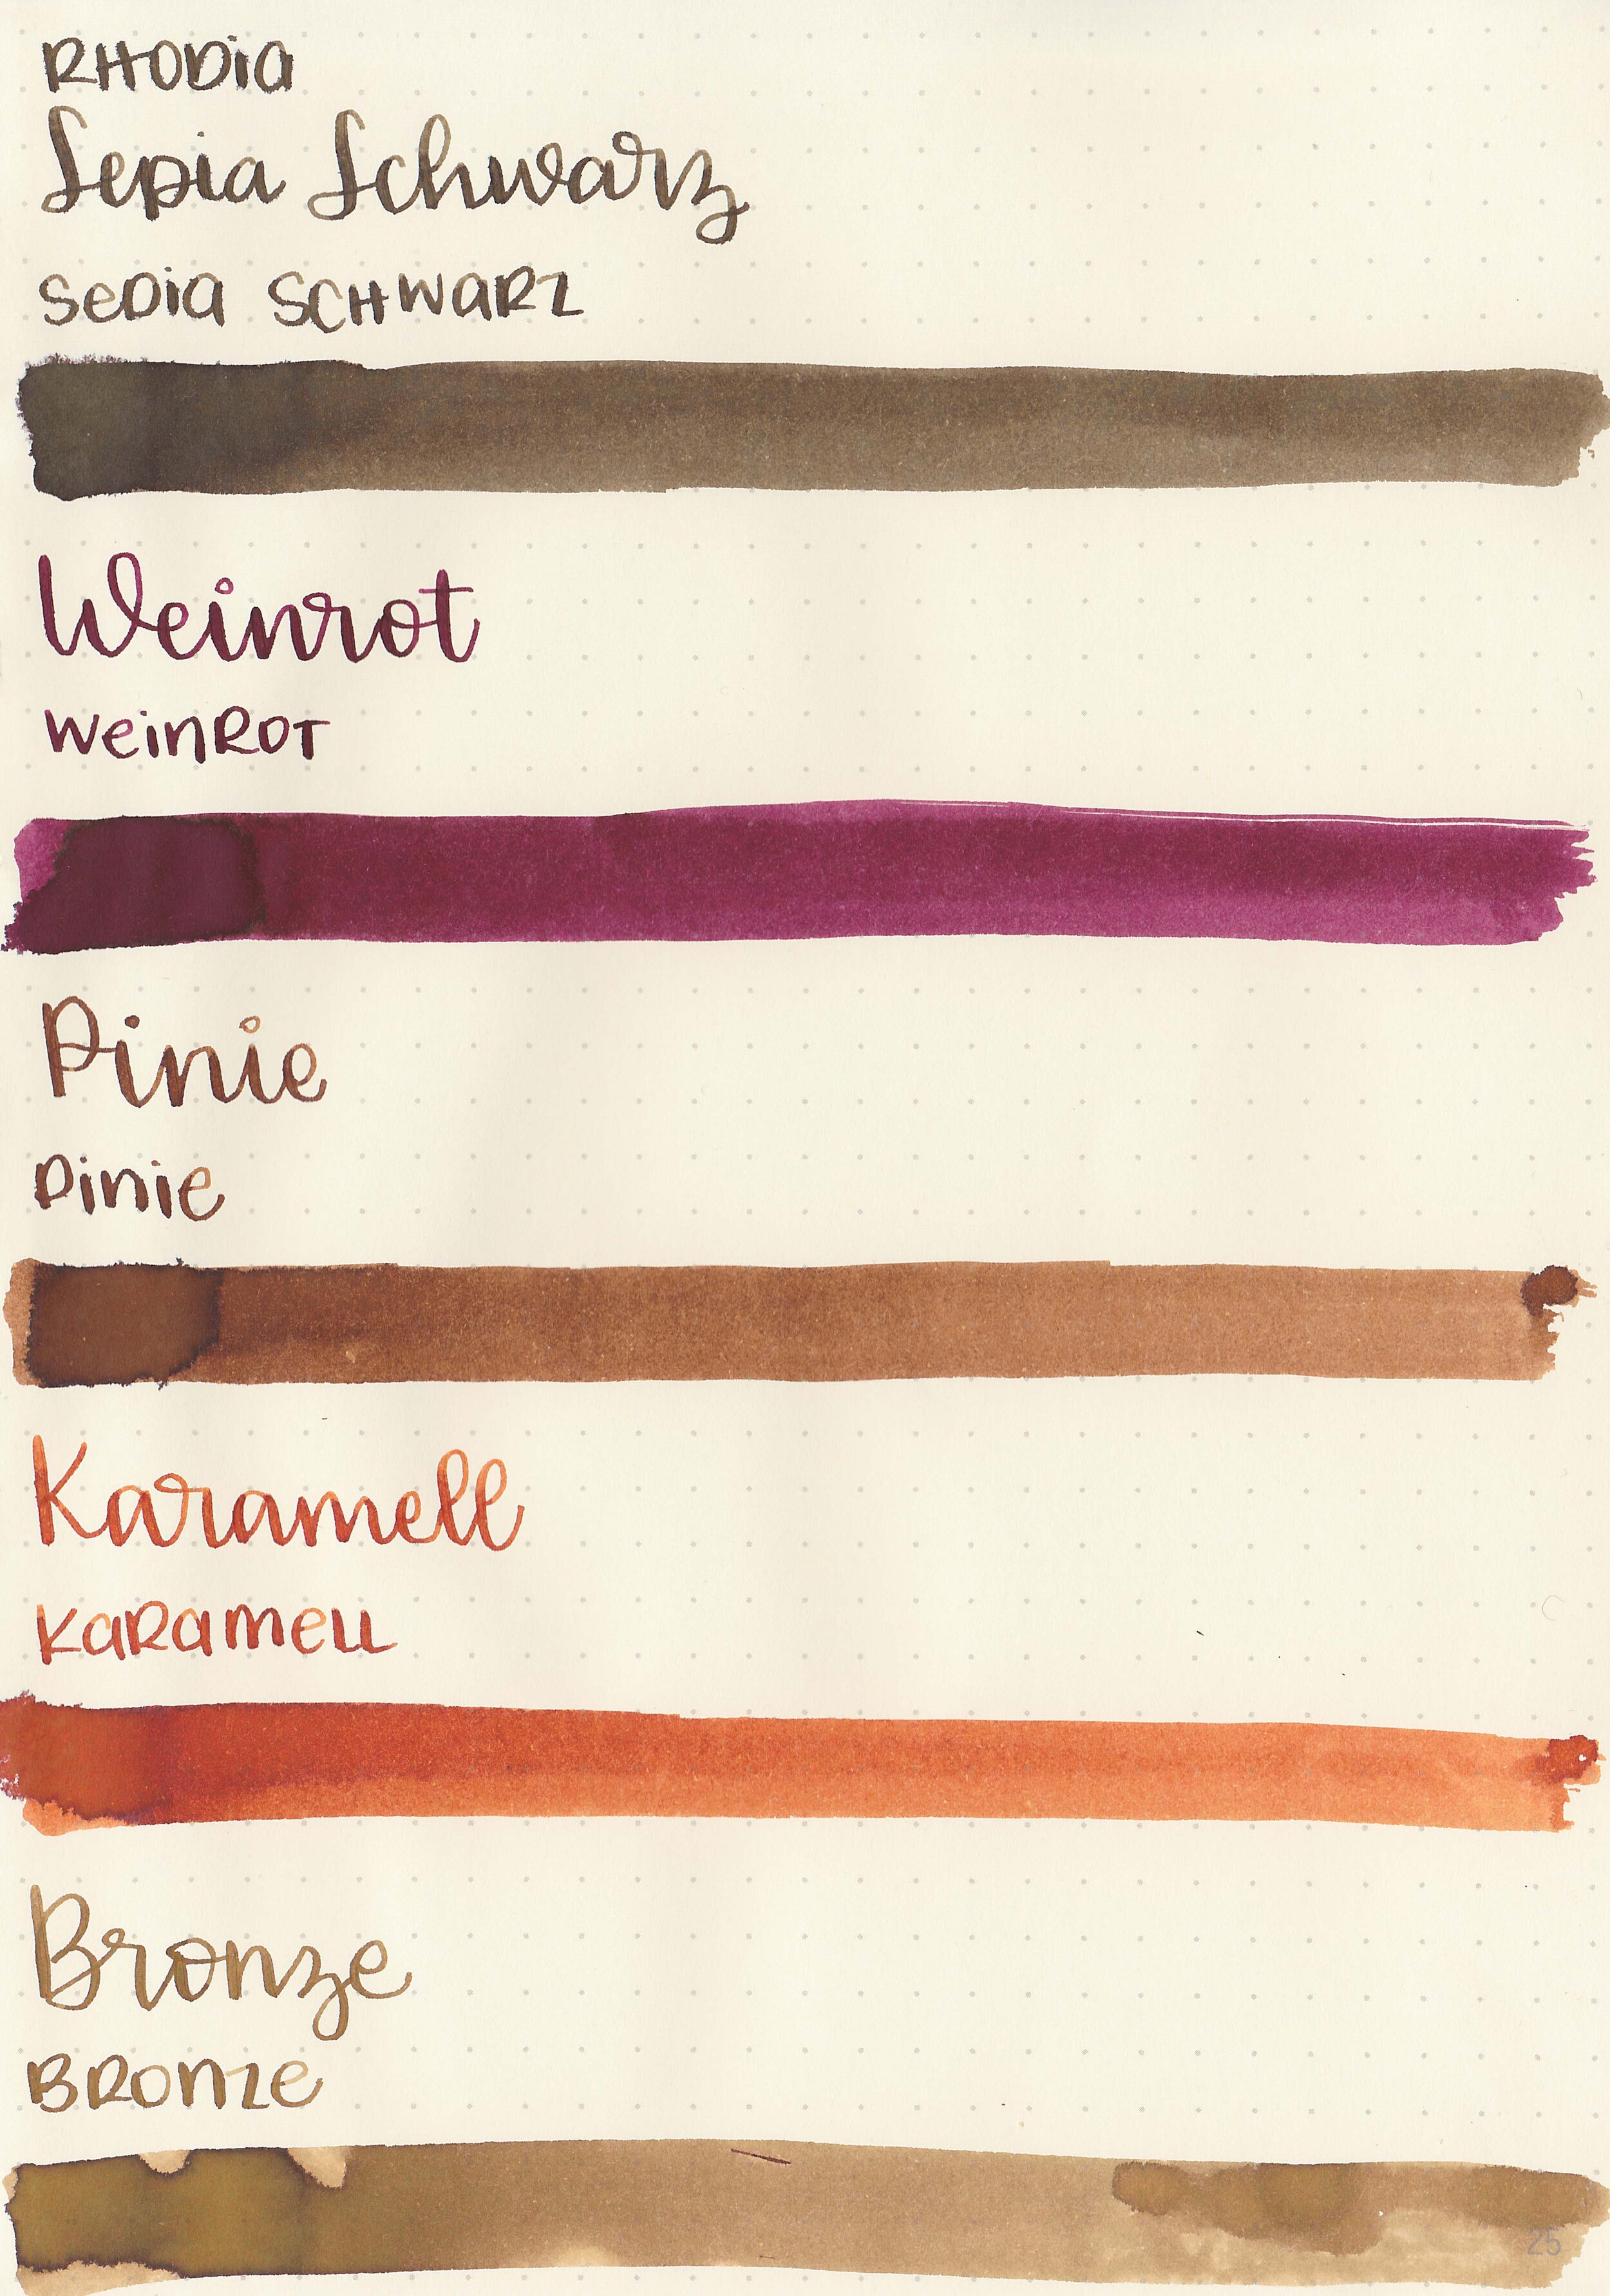 RHODia
Sepia Schwarz
Sepia SCHWaRz
Weinrot
WeinRoT
Pinie
Pinie
Karamell
KaRamell
Bronze
BRonze
25